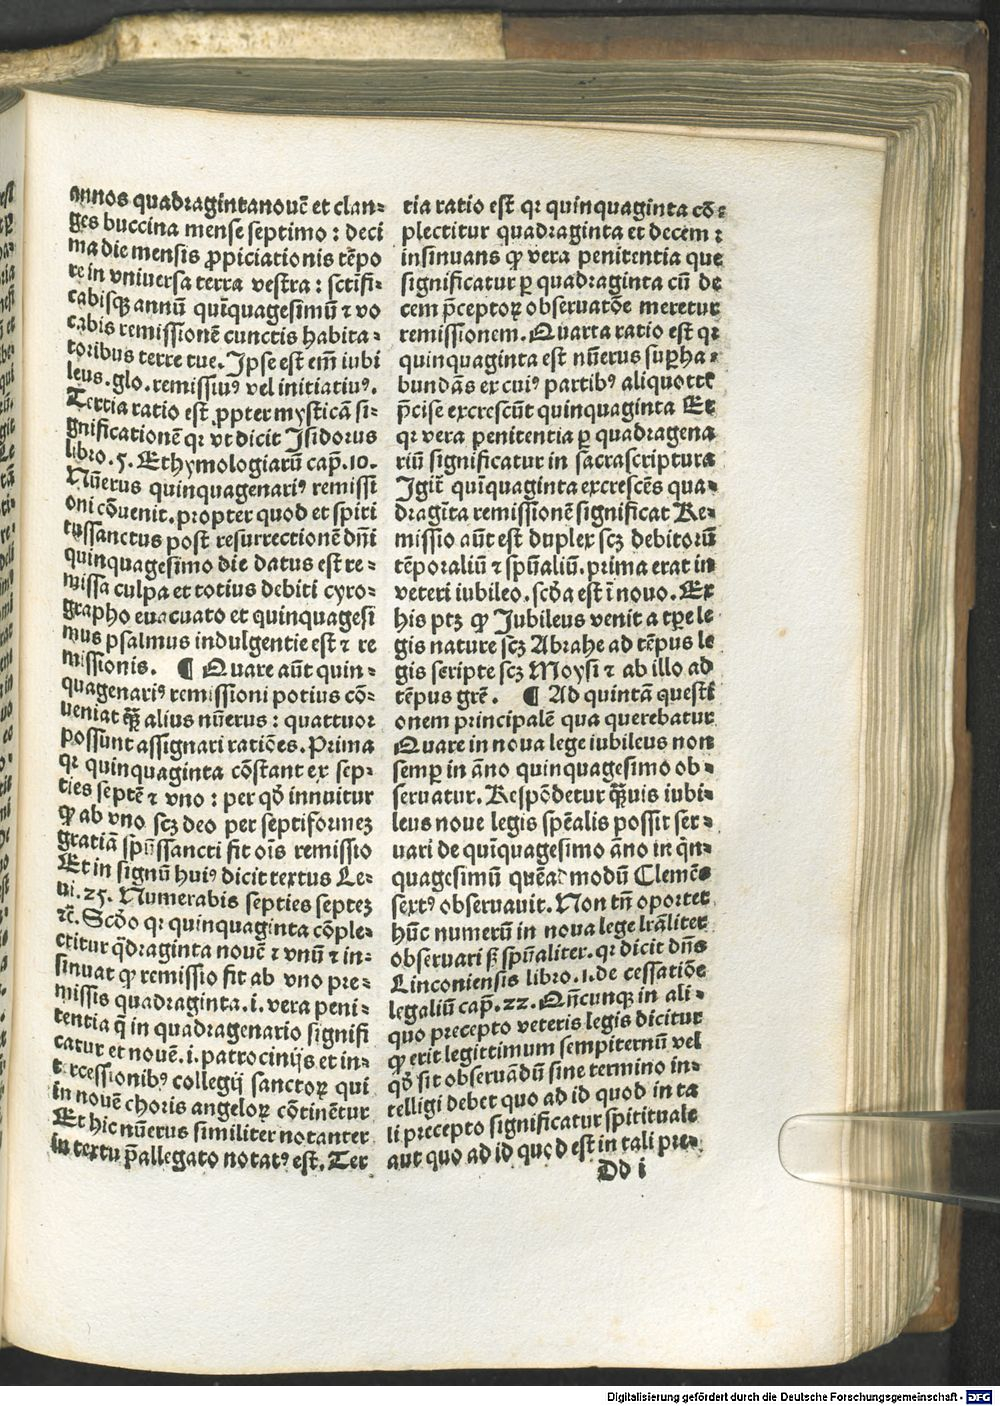 annos quadragintanouē et clan-
ges buccina mense septimo : deci
ma die mensis ꝓpiciationis tēpo
re in vniversa terra vestra : sctifi-
cabisqꝫ annū quīquagesimū ⁊ vo
cabis remissionē cunctis habita-
toribus terre tue. Ipse est em̄ iubi
leus. glo. remissiuꝰ vel initiatiuꝰ.
Tertia ratio est ꝓpter mysticā si-
gnificationē qꝛ vt dicit Isidorus
libro .5. Ethymologiarū cap̄.10.
Nūerus quinquagenariꝰ remissi
oni cōuenit. propter quod et spiti
tussanctus post resurrectionē dn̄i
quinquagesimo die datus est re-
missa culpa et totius debiti cyro-
grapho euacuato et quinquagesi
mus psalmus indulgentie est ⁊ re
missionis. ¶ Quare aūt quin-
quagenariꝰ remissioni potius cō-
ueniat qꝫ̄ alius nūerus : quattuor
possunt assignari ratiōes. Prima
qꝛ quinquaginta cōstant ex sep-
ties septē ⁊ vno : per qd̄ innuitur
ꝙ ab vno scꝫ deo per septiformeꝫ
gratiā spūssancti fit oīs remissio
Et in signū huiꝰ dicit textus Le-
ui. 25. Numerabis septies septeꝫ
⁊c̄. Scd̄o qꝛ quinquaginta cōple-
ctitur qͣdraginta nouē ⁊ vnū ⁊ in-
sinuat ꝙ remissio fit ab vno pre-
missis quadraginta .i. vera peni-
tentia q̄ in quadragenario signifi
catur et nouē .i. patrocinijs et in-
t rcessionibꝰ collegij sanctoꝝ qui
in nouē choris angeloꝝ cōtinētur
Et hic nūerus similiter notanter
in textu p̄allegato notatꝰ est. Ter
tia ratio est qꝛ quinquaginta cō-
plectitur quadraginta et decem :
insinuans ꝙ vera penitentia que
significatur ꝑ quadraginta cū de
cem p̄ceptoꝝ obseruatōe meretur
remissionem. Quarta ratio est qꝛ
quinquaginta est nūerus suꝑha-
bundās ex cuiꝰ partibꝰ aliquotꝭ
p̄cise excrescūt quinquaginta Et
qꝛ vera penitentia ꝑ quadragena
riū significatur in sacrascriptura
Igit̄ quīquaginta excrescēs qua-
dragīta remissionē significat Re-
missio aūt est duplex scꝫ debitorū
tēporaliū ⁊ spūaliū. prima erat in
veteri iubileo. scd̄a est ī nouo. Ex
his ptꝫ ꝙ Jubileus venit a tꝑe le
gis nature scꝫ Abrahe ad tēpus le
gis scripte scꝫ Moysi ⁊ ab illo ad
tēpus grē. ¶ Ad quintā questi
onem principalē qua querebatur
Quare in noua lege iubileus non
semꝑ in āno quinquagesimo ob-
seruatur. Respōdetur qꝫ̄uis iubi-
leus noue legis spēalis possit ser-
uari de quīquagesimo āno in qn̄-
quagesimū quēadmodū Clemēs
sextꝰ obseruauit. Non tn̄ oportet
hūc numerū in noua lege lr̄aliter
obseruari sꝫ spūaliter. qꝛ dicit dn̄s
Linconiensis libro .1. de cessatiōe
legaliū cap̄.22. Qn̄cunqꝫ in ali-
quo precepto veteris legis dicitur
ꝙ erit legittimum sempiternū vel
qd̄ sit obseruādū sine termino in-
telligi debet quo ad id quod in ta
li precepto significatur spitituale
aut quo ad id quod est in tali pre-
Dd i
Digitalisierung gefördert durch die Deutsche Forschungsgemeinschaft - DFG